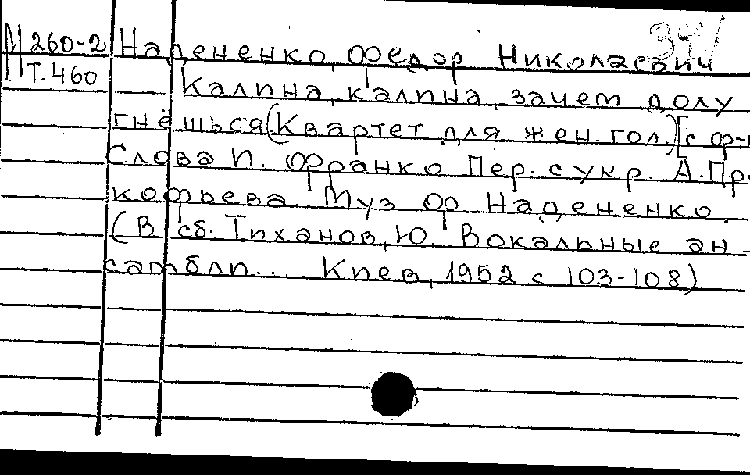 М 260-2 Надененко, Федор Николаевич
Т.460 Калина, калина, зачем долу
гнёшься (Квартет для жен. гол.) [с ф-
Слова И. Франко Пер. с укр. А. Пр
кофьева Муз Ф. Надененко.
(В сб. Тиханов, Ю. Вокальные ан
самбли... Киев, 1952 с 103-108)